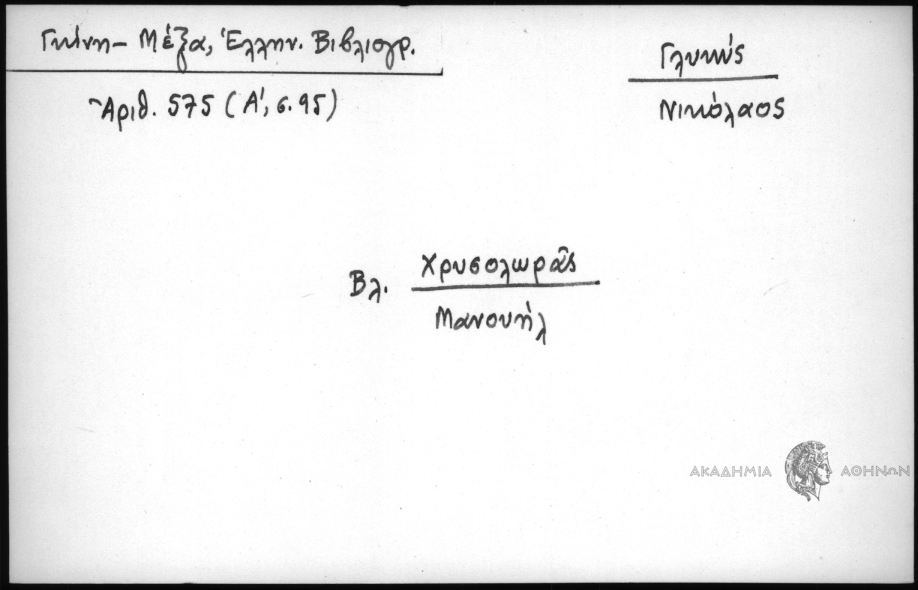 Γκίνη - Μέξα, Ἑλλην. Βιβλιογρ.
Ἀριθ. 575 (Α', σ. 95)
Γλυκύς
Νικόλαος
Βλ. Χρυσολωρᾶς
Μανουήλ
ΑΚΑΔΗΜΙΑ ΑΘΗΝΩΝ